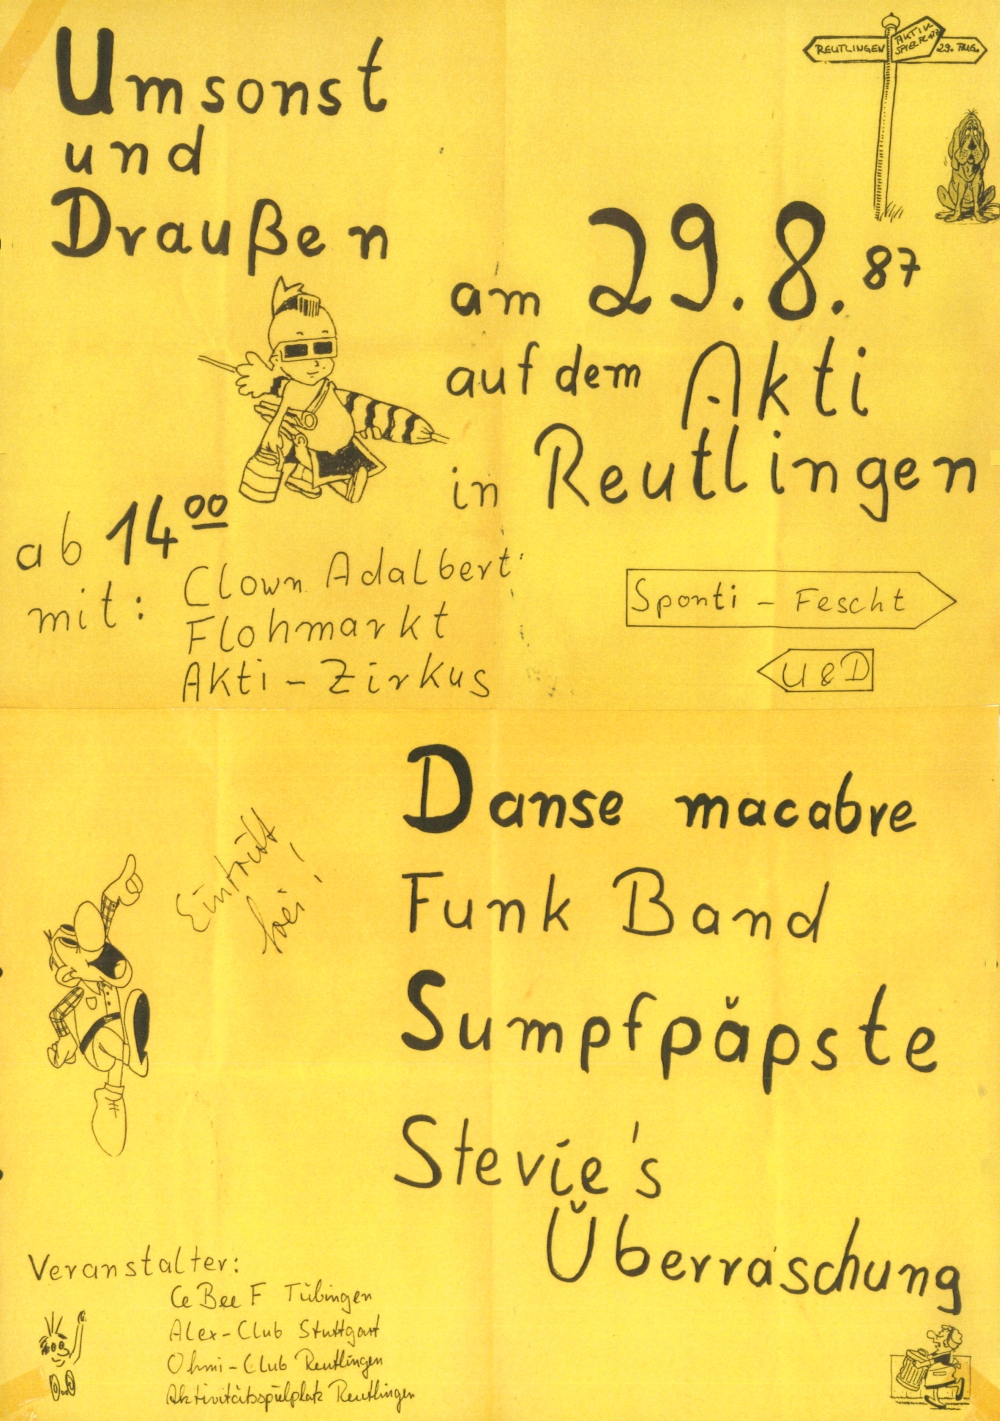 Umsonst
und
Draußen
REUTLINGEN
AKTIV
29. AUG.
am 29.8.87
auf dem Akti
in Reutlingen
ab 14⁰⁰
mit: Clown Adalbert
Flohmarkt
Akti - Zirkus
Sponti - Fescht
U & D
Danse macabre
Eintritt
frei!
Funk Band
Sumpfpäpste
Stevie's
Überraschung
Veranstalter:
Ce Bee F Tübingen
Alex-Club Stuttgart
Ohmi-Club Reutlingen
Aktivitätsspielplatz Reutlingen